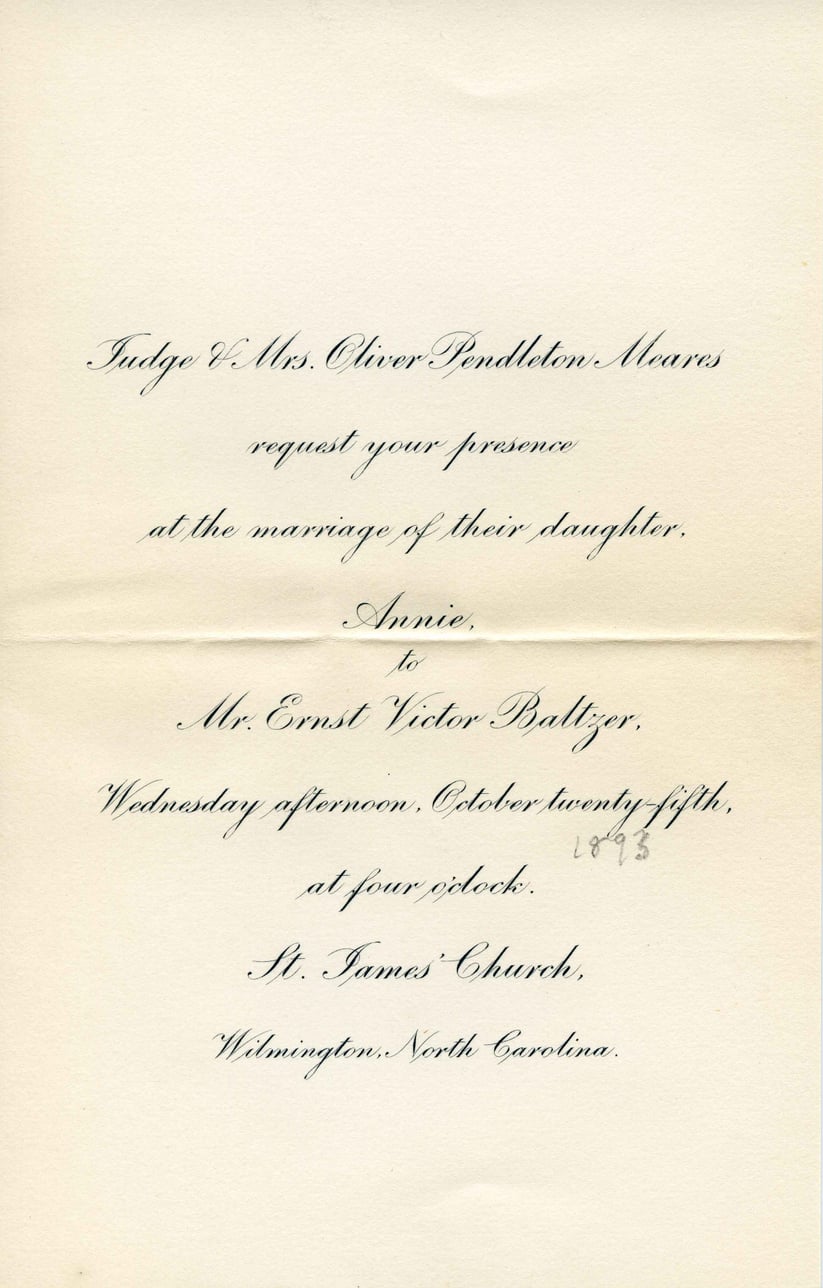 Judge & Mrs. Oliver Pendleton Meares
request your presence
at the marriage of their daughter,
Annie,
to
Mr. Ernst Victor Baltzer,
Wednesday afternoon, October twenty-fifth,
1893
at four o'clock.
St. James' Church,
Wilmington, North Carolina.